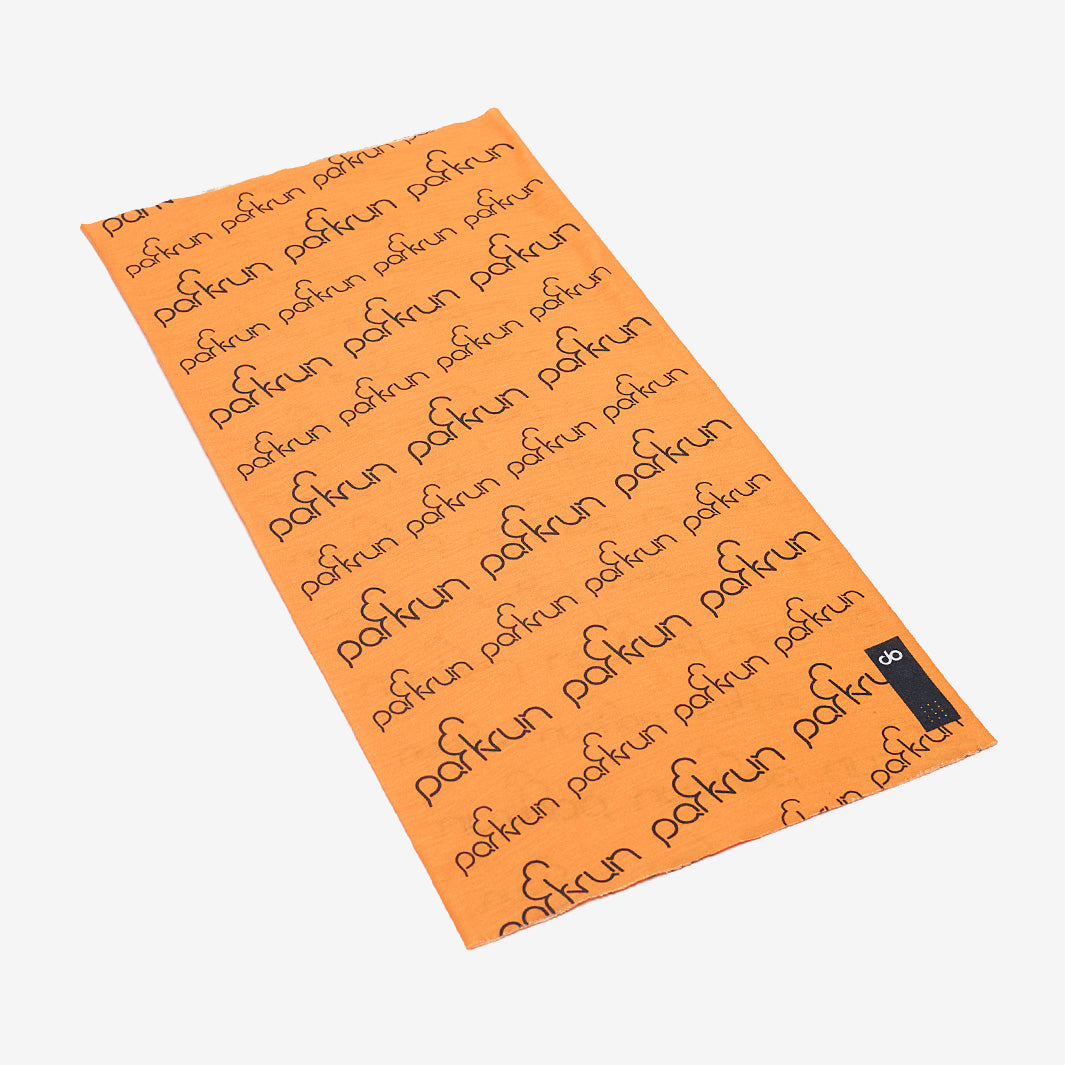 park
parkrun parkrun parkrun
parkrun parkrun parkrun
parkrun parkrun parkrun parkrun
parkrun parkrun parkrun
parkrun parkrun parkrun parkrun
parkrun parkrun parkrun
parkrun parkrun parkrun parkrun
parkrun parkrun parkrun
parkrun parkrun parkrun parkrun
parkrun parkrun parkrun
parkrun parkrun parkrun parkrun
parkrun parkrun parkru
parkrun parkrun